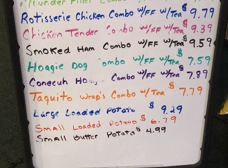 Combo w/FF w/Tea
Rotisserie Chicken Combo w/FF w/Tea $ 9.79
Chicken Tender Combo w/FF w/Tea $ 9.39
Smoked Ham Combo w/FF w/Tea $ 9.59
Hoagie Dog Combo w/FF w/Tea $ 7.59
Conecuh Combo w/FF w/Tea $ 7.89
Taquito Wraps Combo w/Tea $ 7.79
Large Loaded Potato $ 9.29
Small Loaded Potato $ 6.79
Small Butter Potato $ 4.99